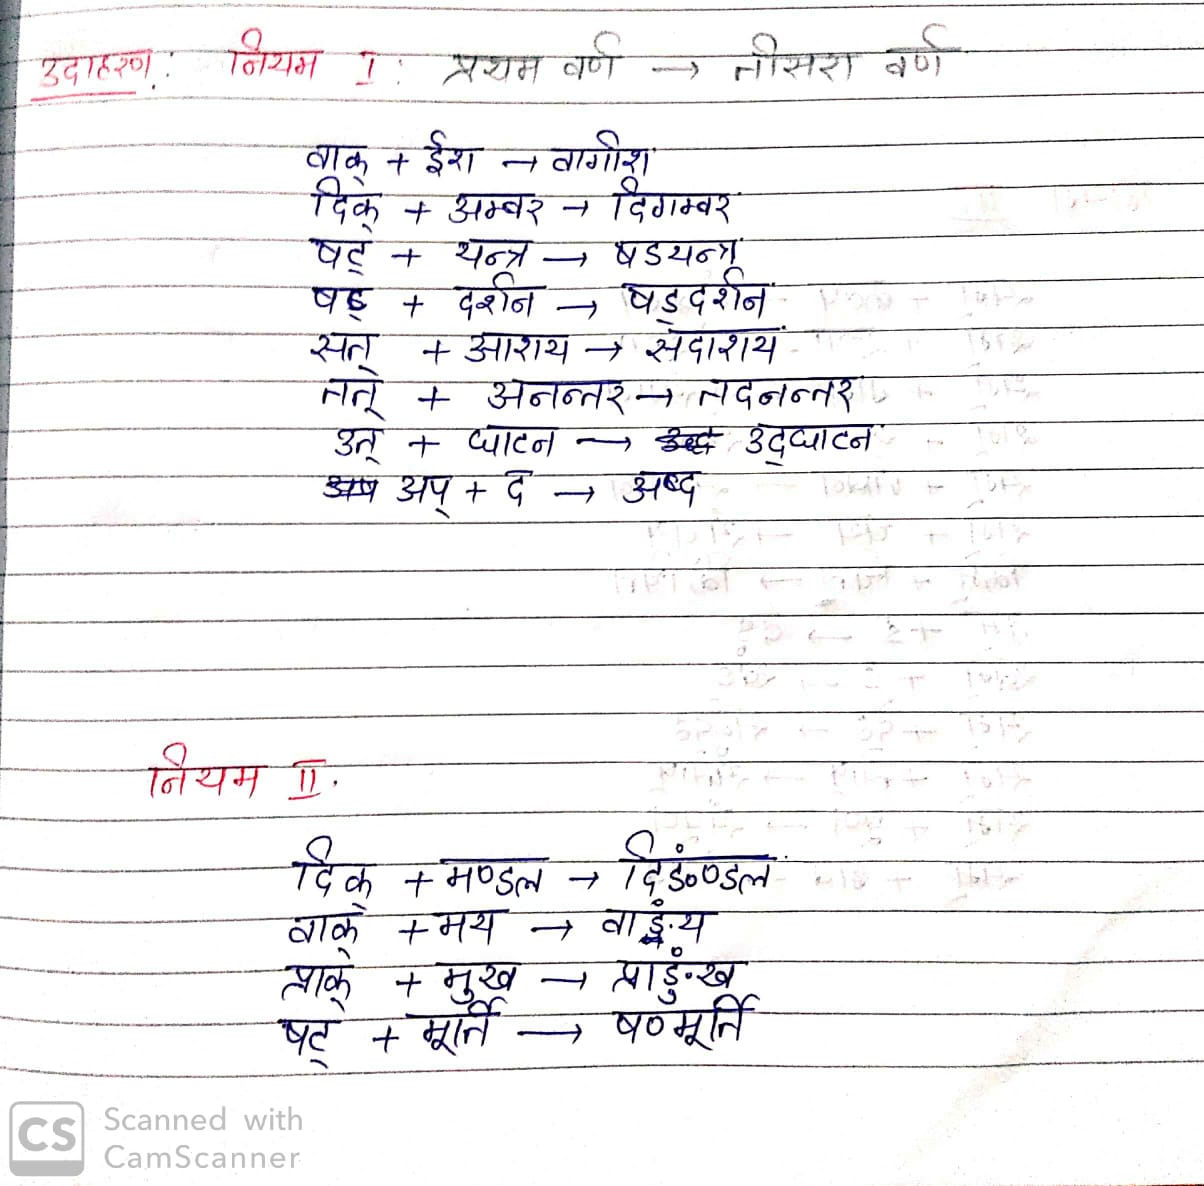 उदाहरण: नियम I: प्रथम वर्ण → तीसरा वर्ण
वाक् + ईश → वागीश
दिक् + अम्बर → दिगम्बर
षट् + यन्त्र → षडयन्त्र
षट् + दर्शन → षड्दर्शन
सत् + आशय → सदाशय
तत् + अनन्तर → तदनन्तर
उत् + घाटन → उद्घाटन
अप् + द → अब्द
नियम II.
दिक् + मण्डल → दिङंण्डल
वाक् + मय → वाङंय
प्राक् + मुख → प्राङुंख
षट् + मूर्ति → षण्मूर्ति
CS Scanned with
CamScanner